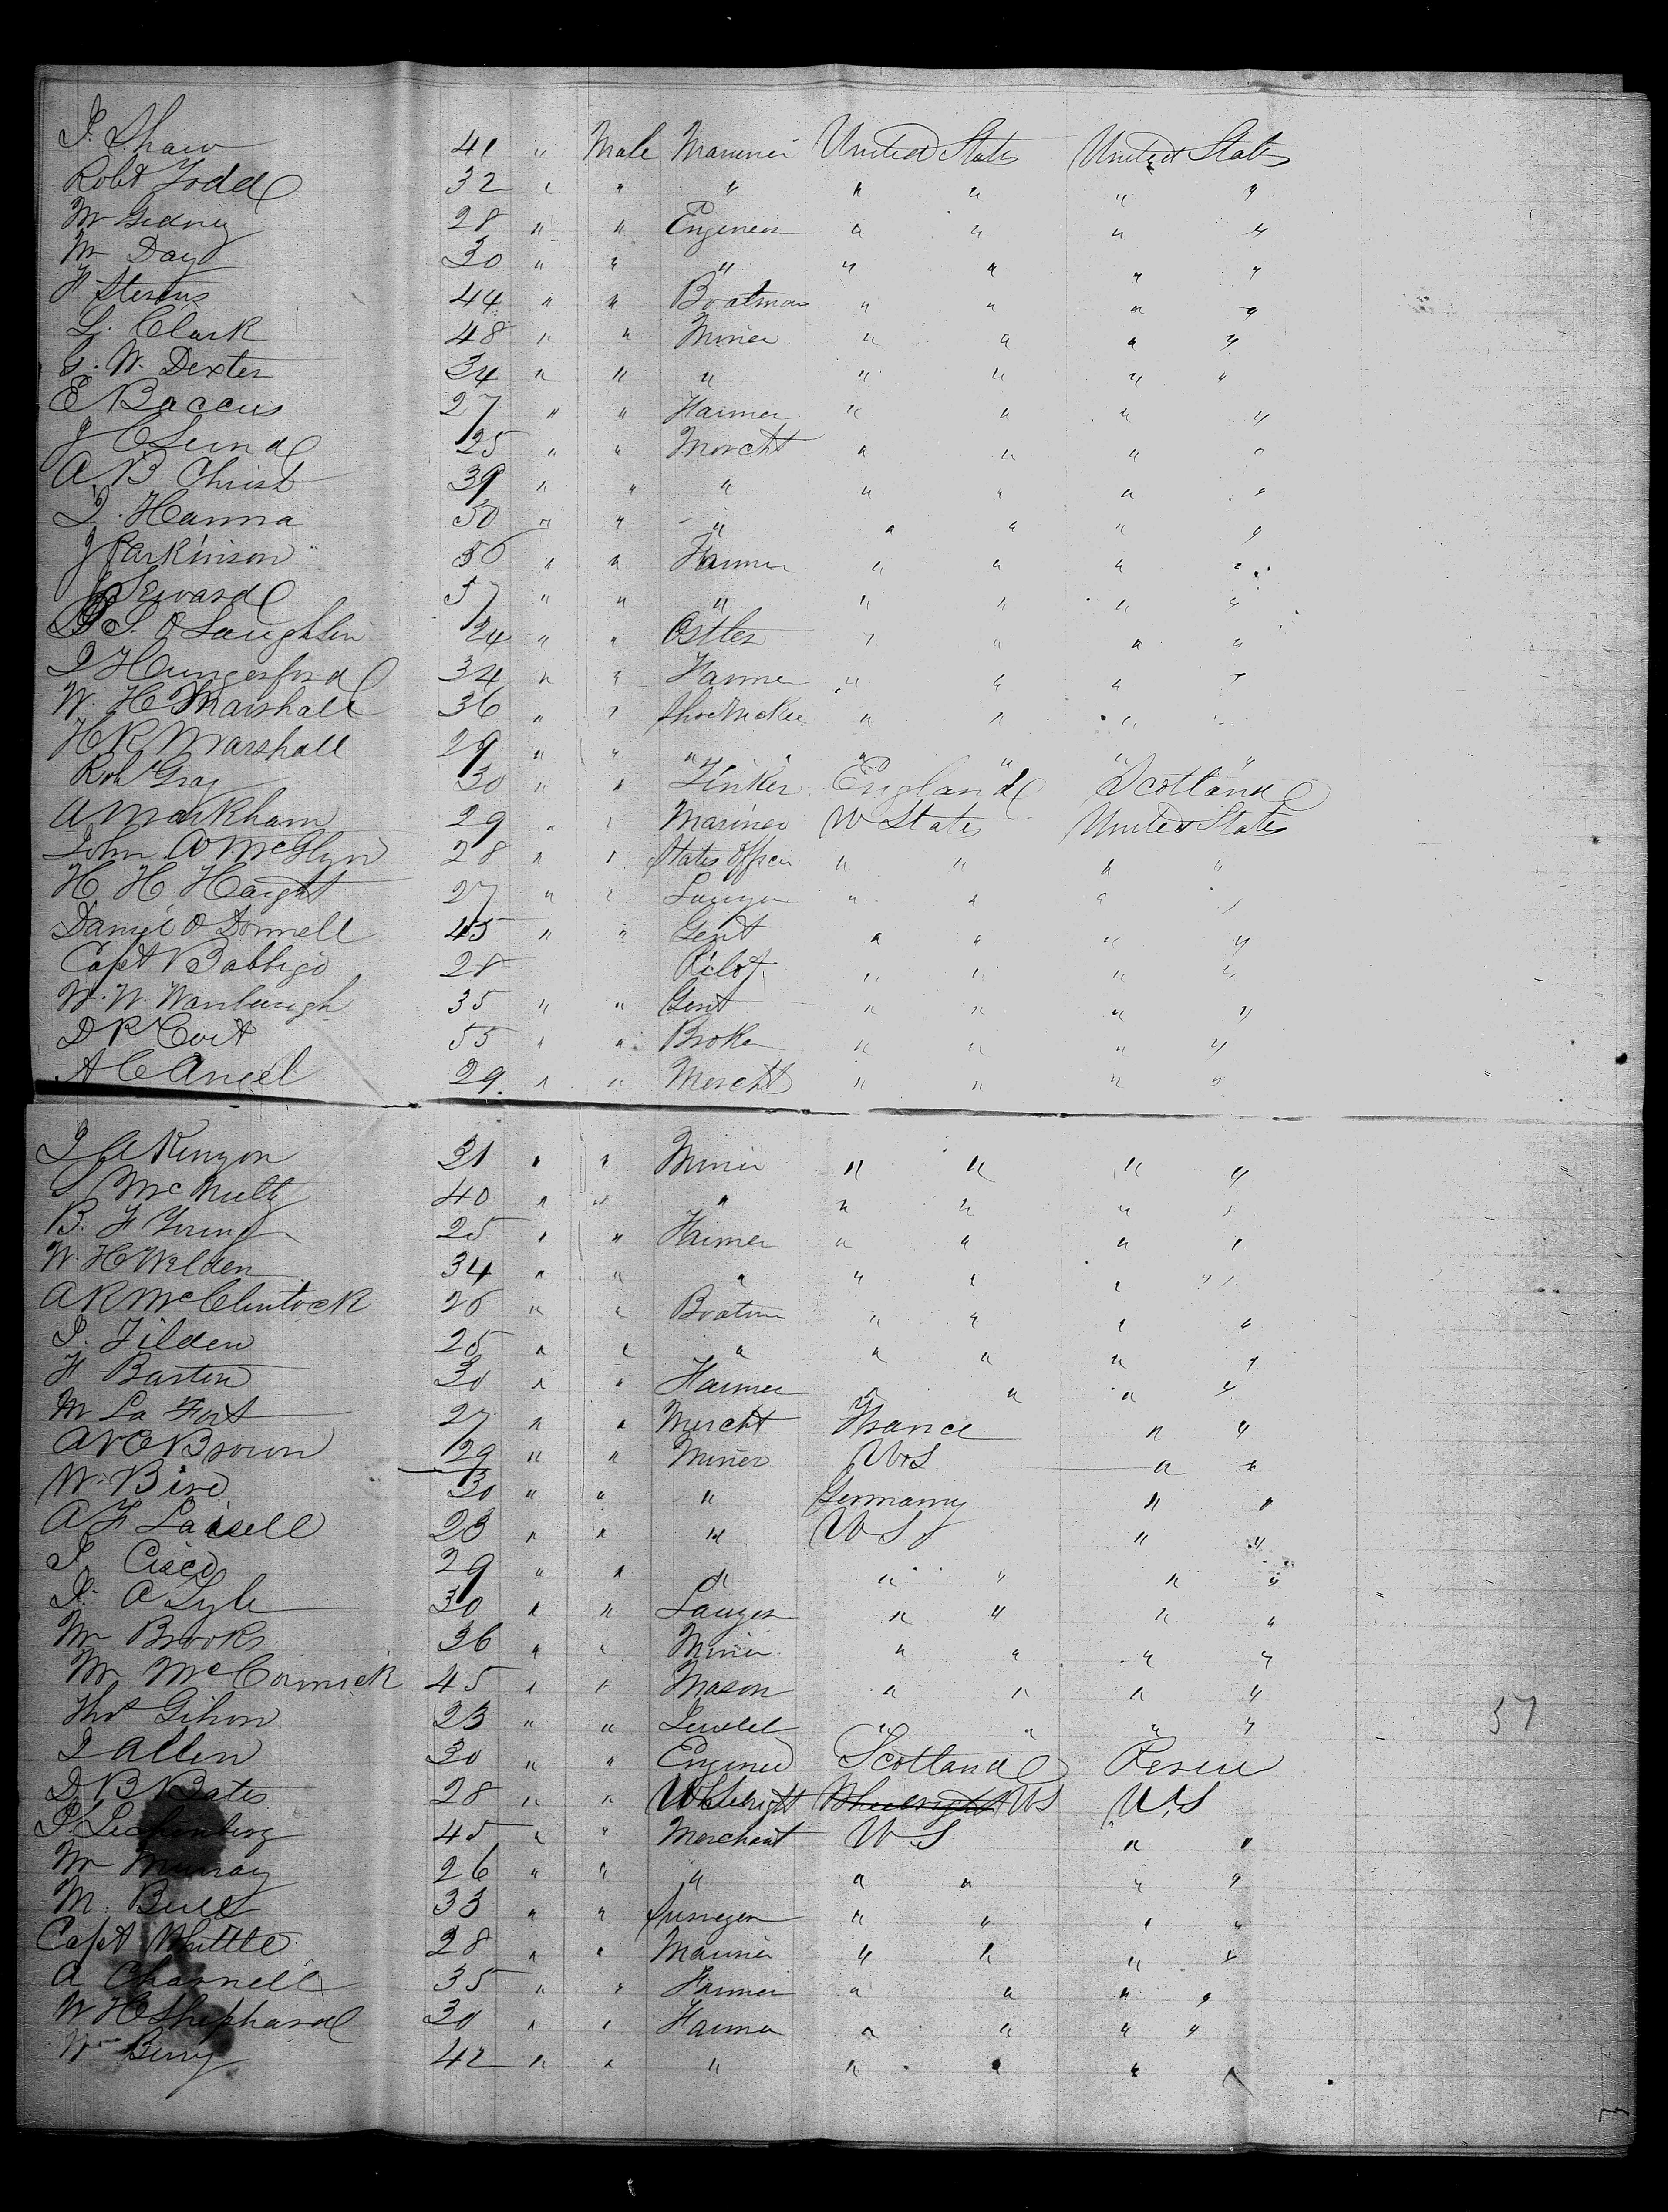 J. Shaw 41 " Male Mariner United States United States
Robt Todd 32 " " " " " " "
Mr Gidney 28 " " Engineer " " " "
Mr Day 30 " " " " " " "
F Stevens 44 " " Boatman " " " "
L. Clark 48 " " Miner " " " "
G. W. Dexter 34 " " " " " " "
E Baccus 27 " " Farmer " " " "
J C 25 " " Mercht " " " "
A B Christ 39 " " " " " " "
J. Hanna 50 " " " " " " "
J Parkinson 50 " " Farmer " " " "
J Seward 57 " " " " " " "
S. O Laughlin 24 " " Ostler " " " "
J Hungerford 34 " " Farmer " " " "
W. H Marshall 36 " " Shoemaker " " " "
H R Marshall 29 " " " " " " "
Robt Gray 30 " " Tinker England Scotland
A Markham 29 " " Mariner U States United States
John A McGlyn 28 " " States Officer " " " "
H H Haight 27 " " Lawyer " " " "
Daniel O Donnell 45 " " Gent " " " "
Capt Babbige 28 Pilot " " " "
W. W. Wanbaugh 35 " " Gent " " " "
D P Coit 55 " " Broker " " " "
A C Angel 29 " " Mercht " " " "
J A Kenyon 31 " " Miner " " " "
S McNulty 40 " " " " " " "
B. F Young 25 " " Farmer " " " "
W. H Welden 34 " " " " " " "
A R McClintock 26 " " Boatm " " " "
J. Tilden 25 " " " " " " "
F Barton 30 " " Farmer " " " "
Mr La Fort 27 " " Mercht France " "
A V E Brown 29 " " Miner U S " "
W Bird 30 " " " Germany " "
A F Laisell 23 " " " U S " "
J. Cisco 29 " " " " " " "
J. A Lyle 30 " " Lawyer " " " "
Mr Brooks 36 " " Miner " " " "
Mr McCormick 45 " " Mason " " " "
Thos Gihon 23 " " Jeweler " " " "
J Allen 30 " " Engineer Scotland
D B Bates 28 " " Wheelright Wheelwright US U.S
45 " " Merchant U S " "
Mr Murray 26 " " " " " " "
M. Bull 33 " " Surgeon " " " "
Capt Whittle 28 " " Mariner " " " "
A Charnell 35 " " Farmer " " " "
W H Shephard 30 " " Farmer " " " "
Wm Berry 42 " " " " " " "
57